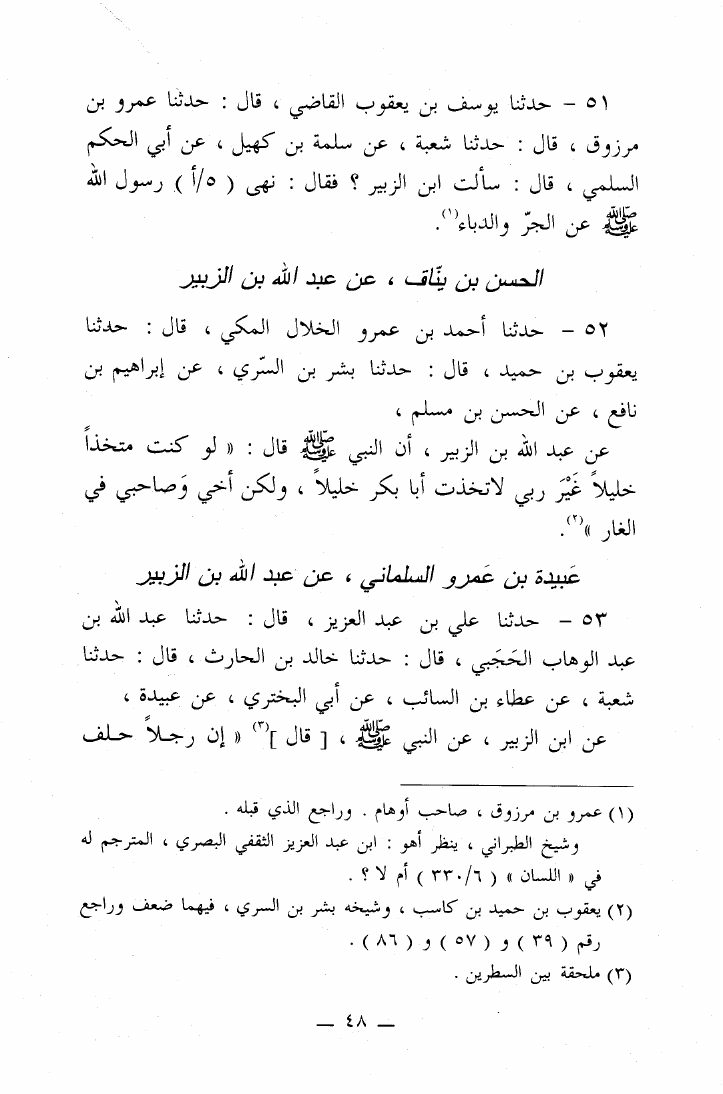 ٥١ - حدثنا يوسف بن يعقوب القاضي ، قال : حدثنا عمرو بن
مرزوق ، قال : حدثنا شعبة ، عن سلمة بن كهيل ، عن أبي الحكم
السلمي ، قال : سألت ابن الزبير ؟ فقال : نهى ( ٥/أ ) رسول الله
ﷺ عن الجرّ والدباء(١).
الحسن بن ينّاق ، عن عبد الله بن الزبير
٥٢ - حدثنا أحمد بن عمرو الخلال المكي ، قال : حدثنا
يعقوب بن حميد ، قال : حدثنا بشر بن السّري ، عن إبراهيم بن
نافع ، عن الحسن بن مسلم ،
عن عبد الله بن الزبير ، أن النبي ﷺ قال : « لو كنت متخذاً
خليلاً غَيْرَ ربي لاتخذت أبا بكر خليلاً ، ولكن أخي وَصاحبي في
الغار »(٢).
عَبيدة بن عَمرو السلماني ، عن عبد الله بن الزبير
٥٣ - حدثنا علي بن عبد العزيز ، قال : حدثنا عبد الله بن
عبد الوهاب الحَجَبي ، قال : حدثنا خالد بن الحارث ، قال : حدثنا
شعبة ، عن عطاء بن السائب ، عن أبي البختري ، عن عبيدة ،
عن ابن الزبير ، عن النبي ﷺ ، [ قال ](٣) « إن رجلاً حلف
(١) عمرو بن مرزوق ، صاحب أوهام . وراجع الذي قبله .
وشيخ الطبراني ، ينظر أهو : ابن عبد العزيز الثقفي البصري ، المترجم له
في « اللسان » ( ٣٣٠/٦ ) أم لا ؟ .
(٢) يعقوب بن حميد بن كاسب ، وشيخه بشر بن السري ، فيهما ضعف وراجع
رقم ( ٣٩ ) و ( ٥٧ ) و ( ٨٦ ) .
(٣) ملحقة بين السطرين .
— ٤٨ —